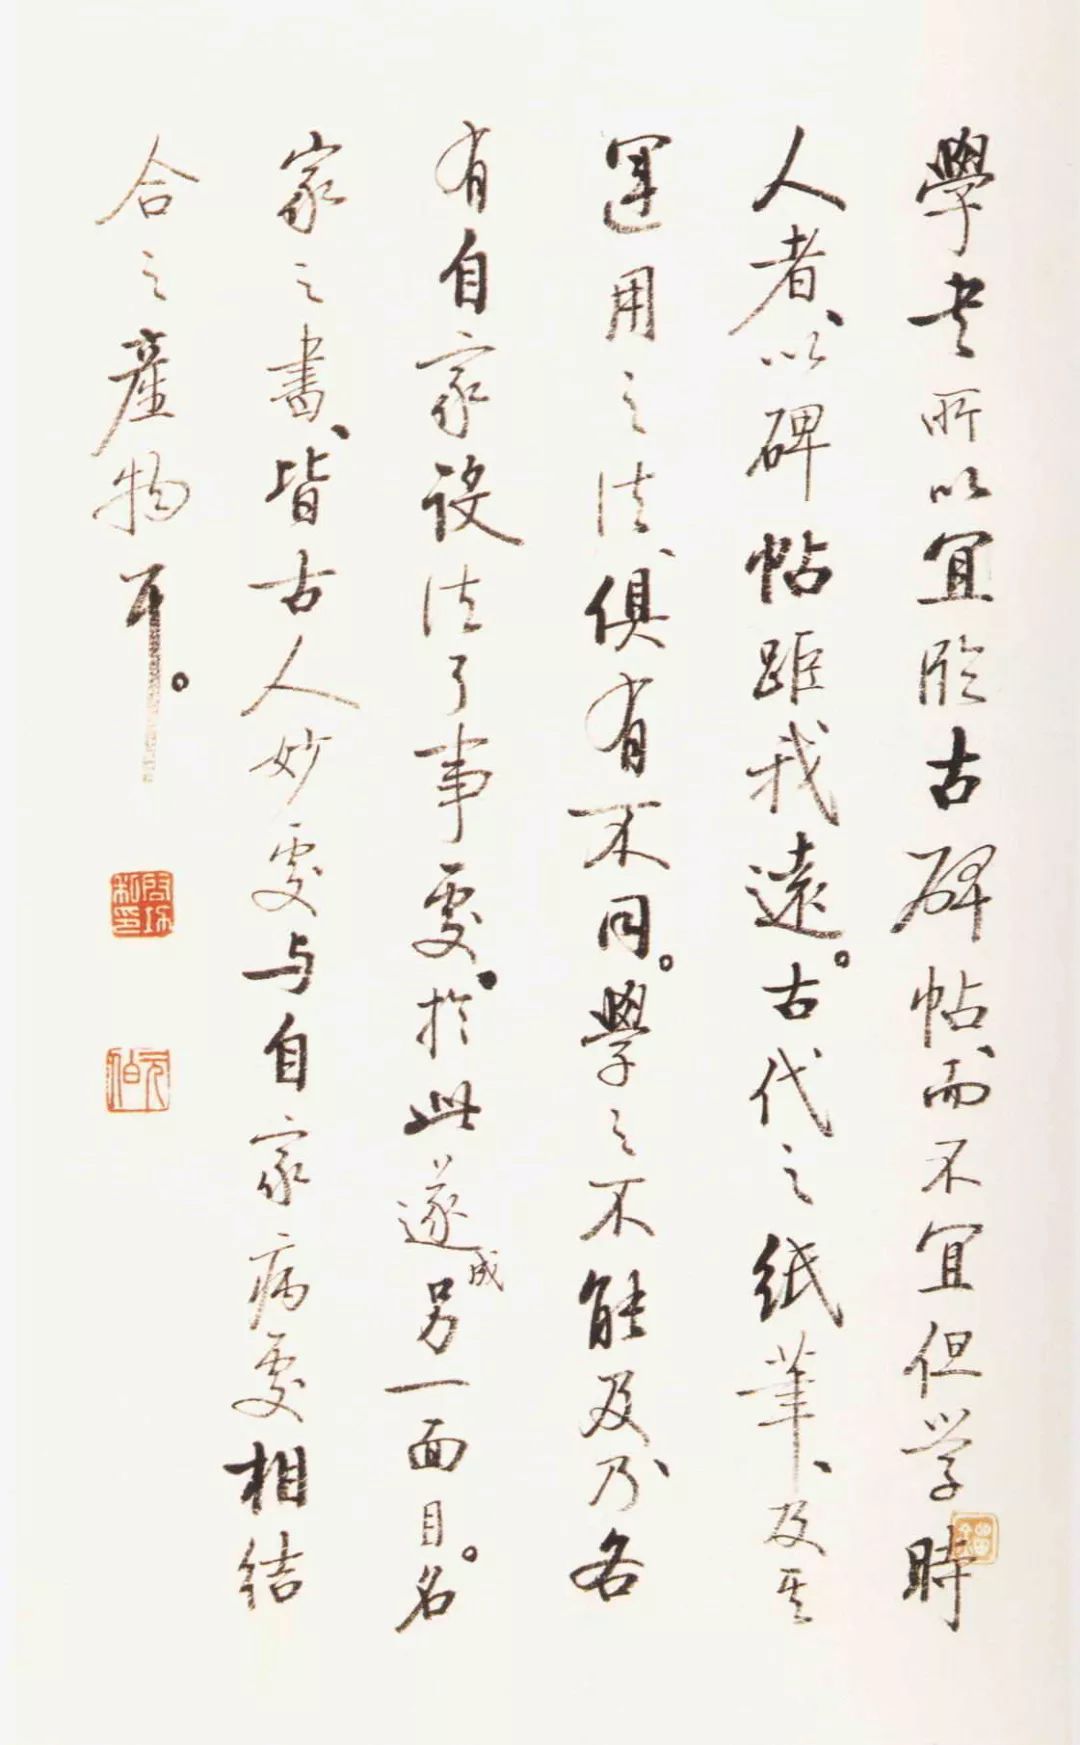 學书所以宜臨古碑帖、而不宜但学時
人者、以碑帖距我遠。古代之紙筆、及其
運用之法、俱有不同。學之不能及、乃各
有自家设法了事處。於此遂成另一面目。名
家之書、皆古人妙處与自家病處相結
合之產物耳。
啟功私印
元伯